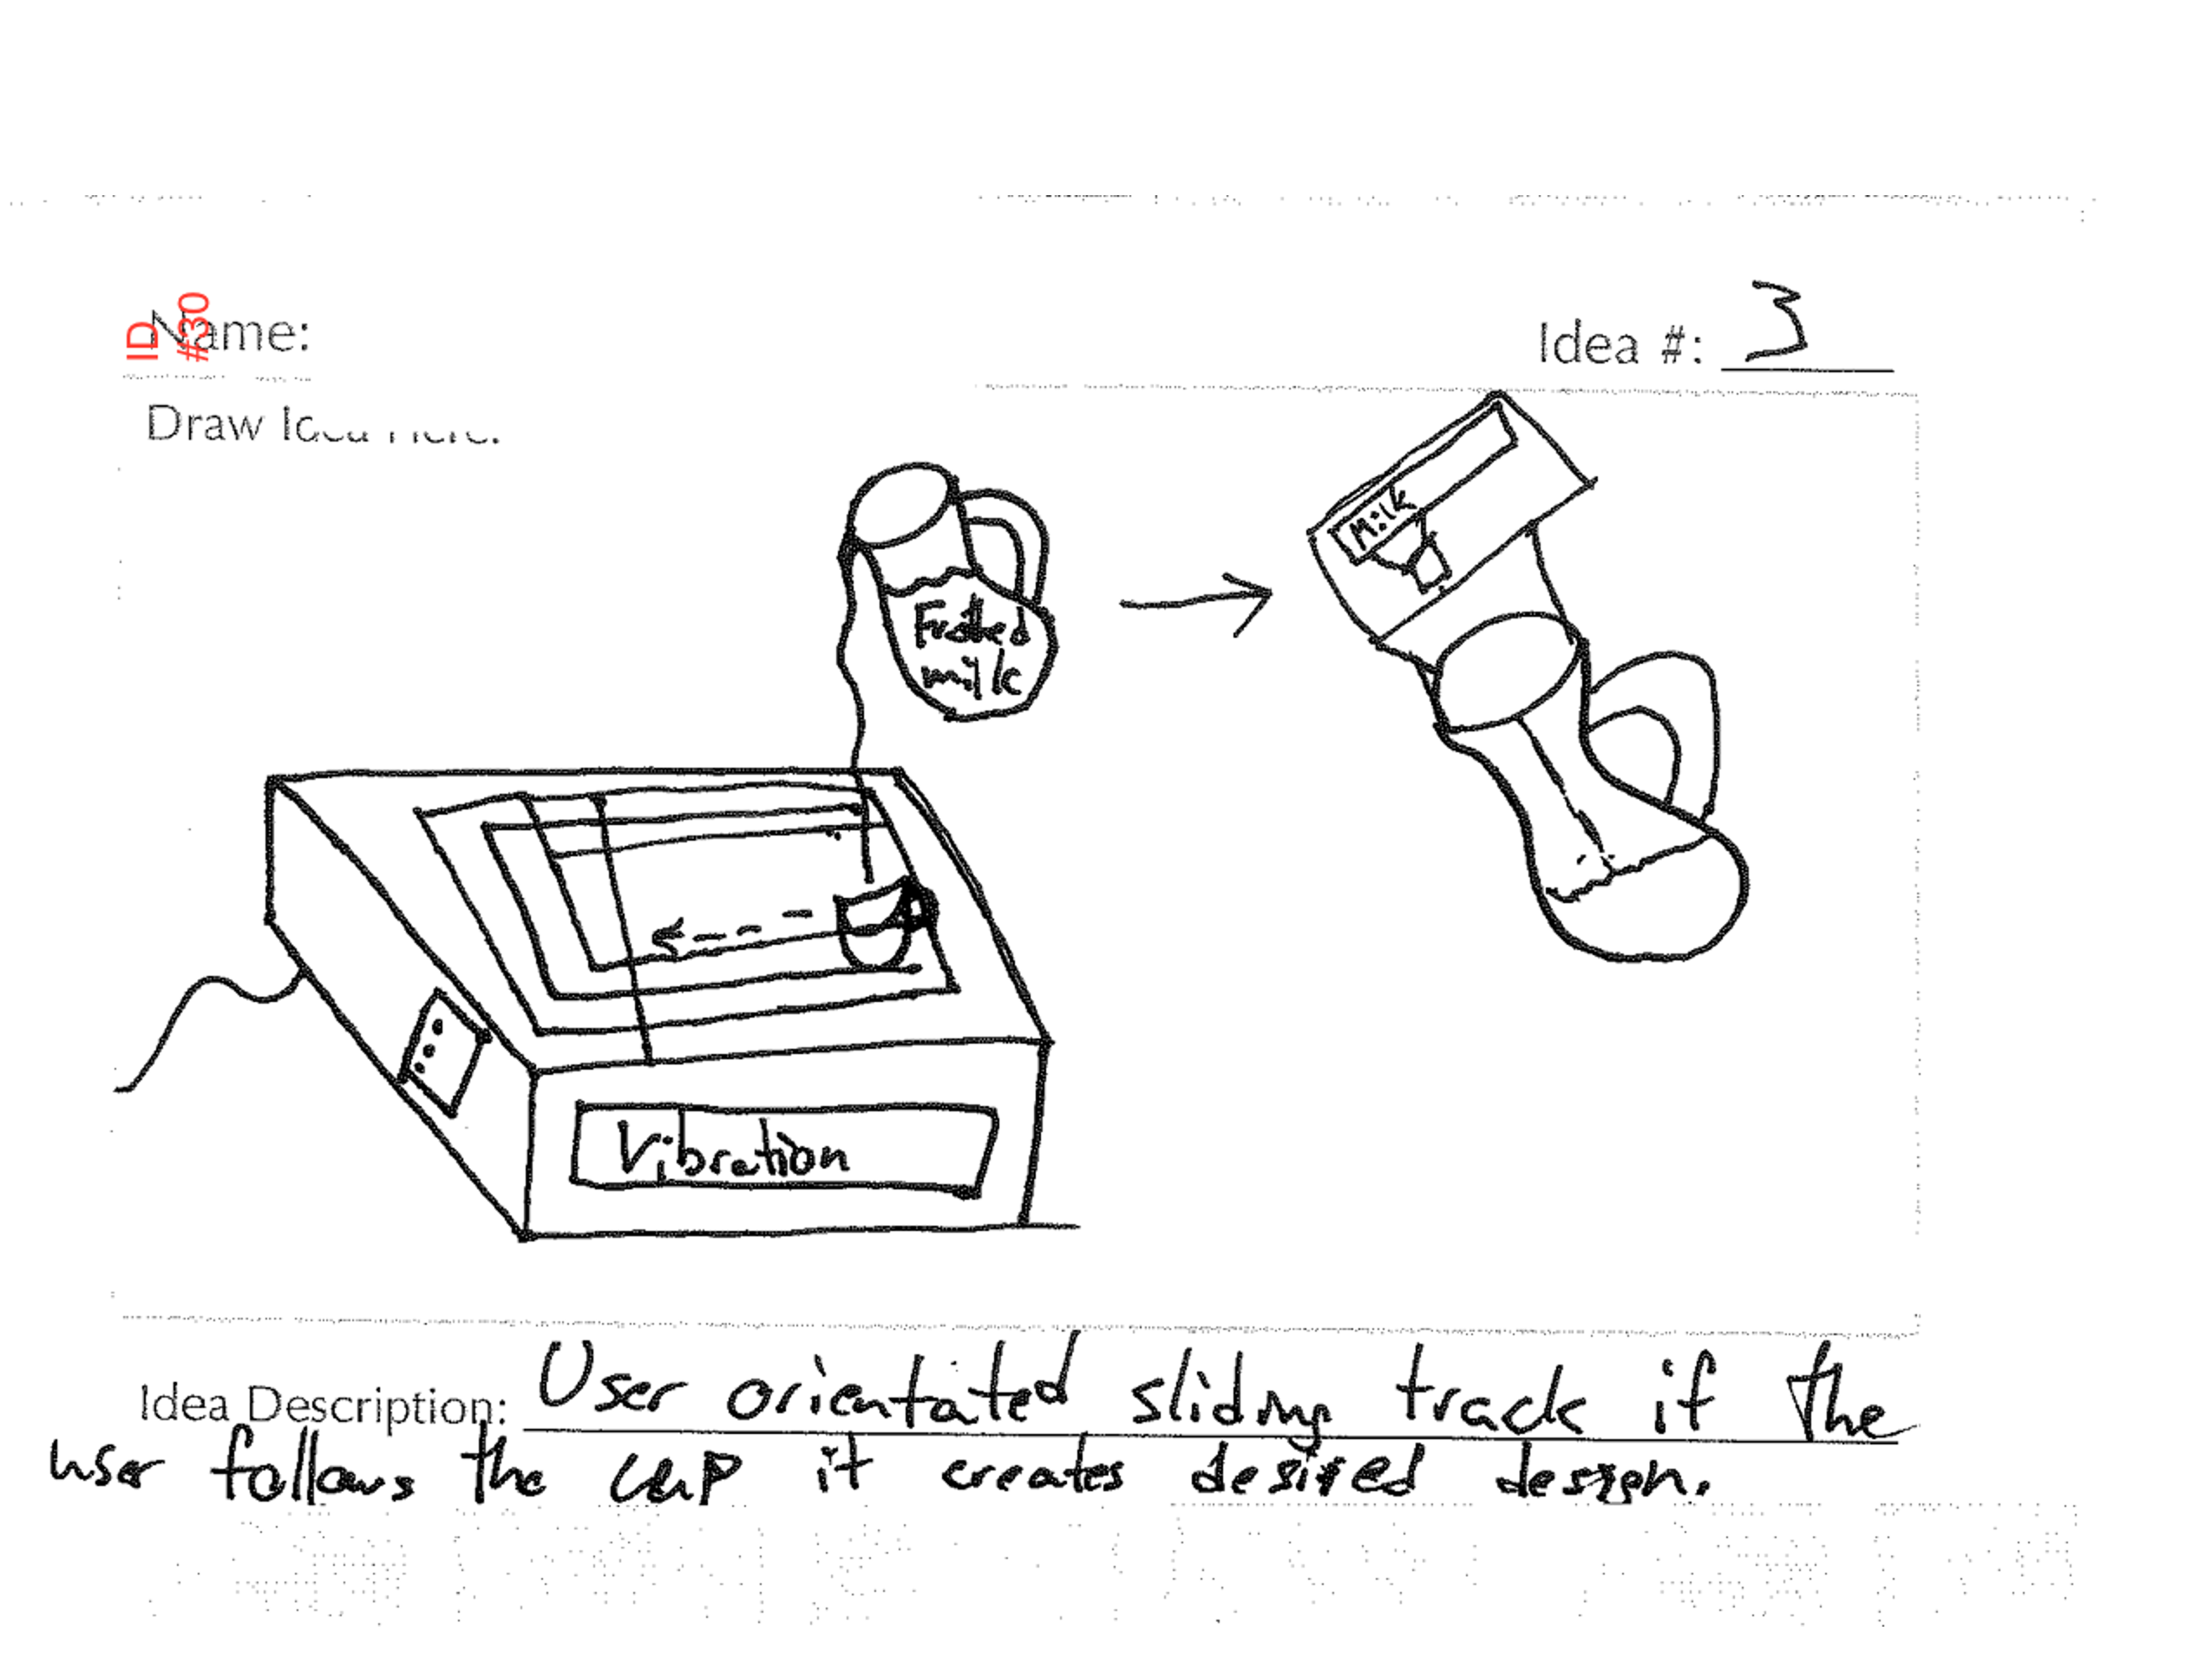 ID
#30
Name:
Idea #: 3
Draw Idea Here:
Milk
Frothed
milk
Vibration
Idea Description: User orientated sliding track if the
user follows the cup it creates desired design.